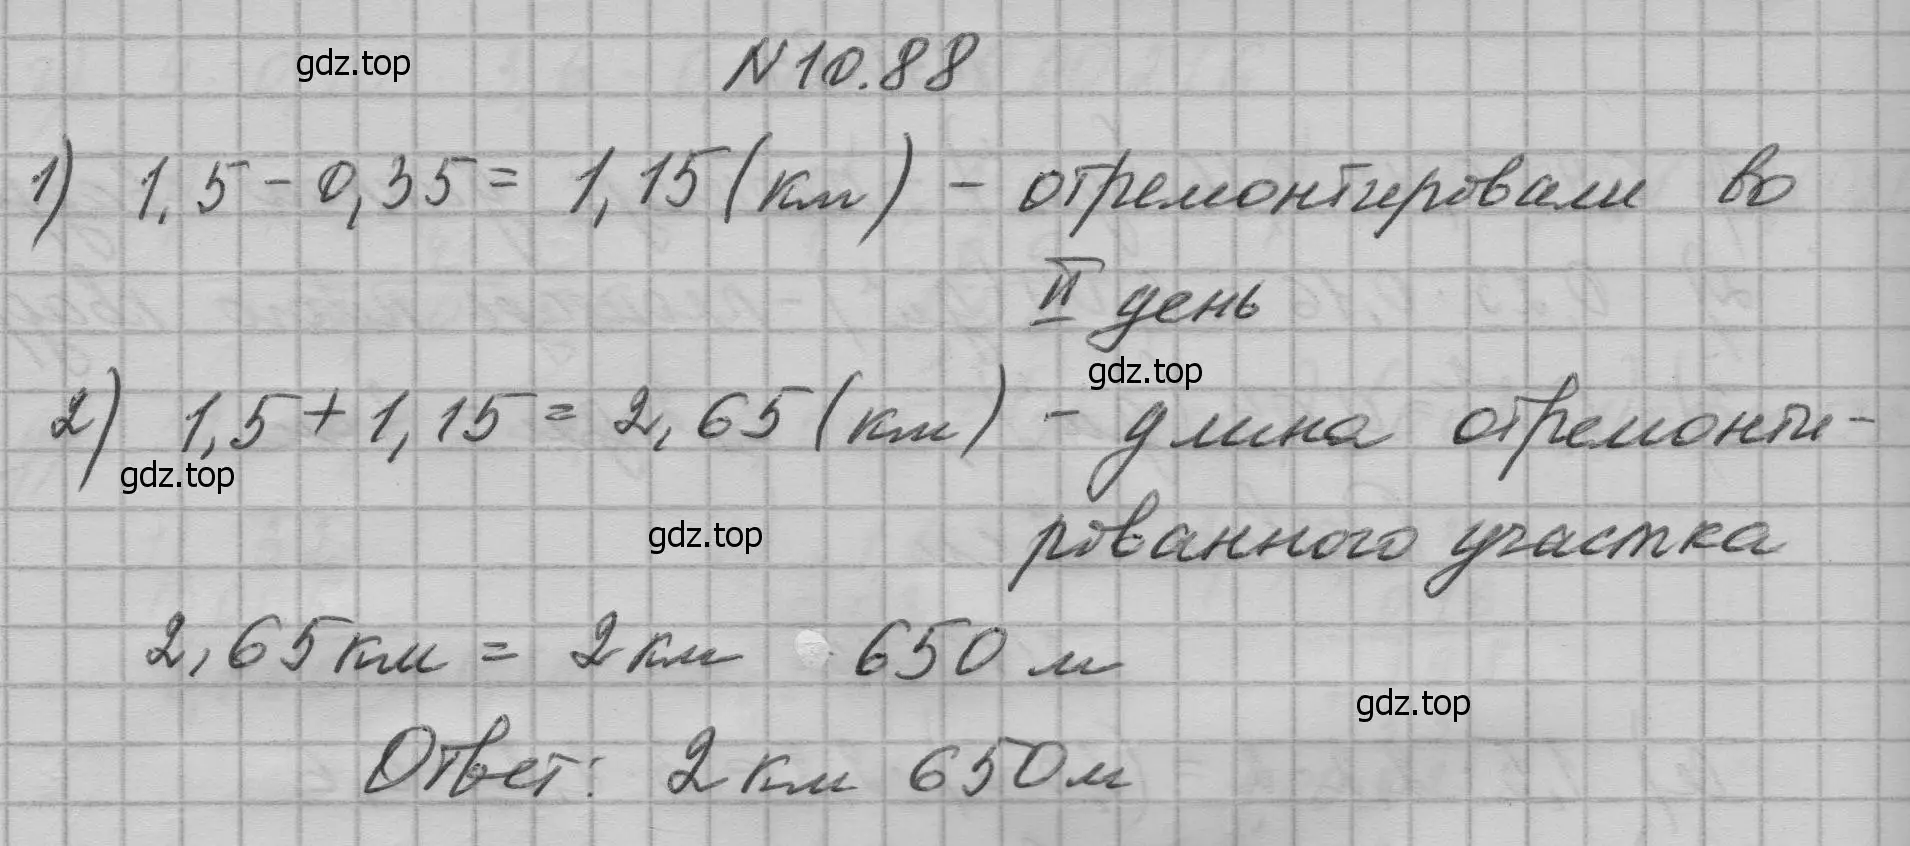 gdz.top
N10.88
1) 1,5 - 0,35 = 1,15 (км) - отремонтировали во
II день
gdz.top
2) 1,5 + 1,15 = 2,65 (км) - длина отремонти-
gdz.top
gdz.top
рованного участка
2,65км = 2км 650 м
gdz.top
Ответ: 2км 650м